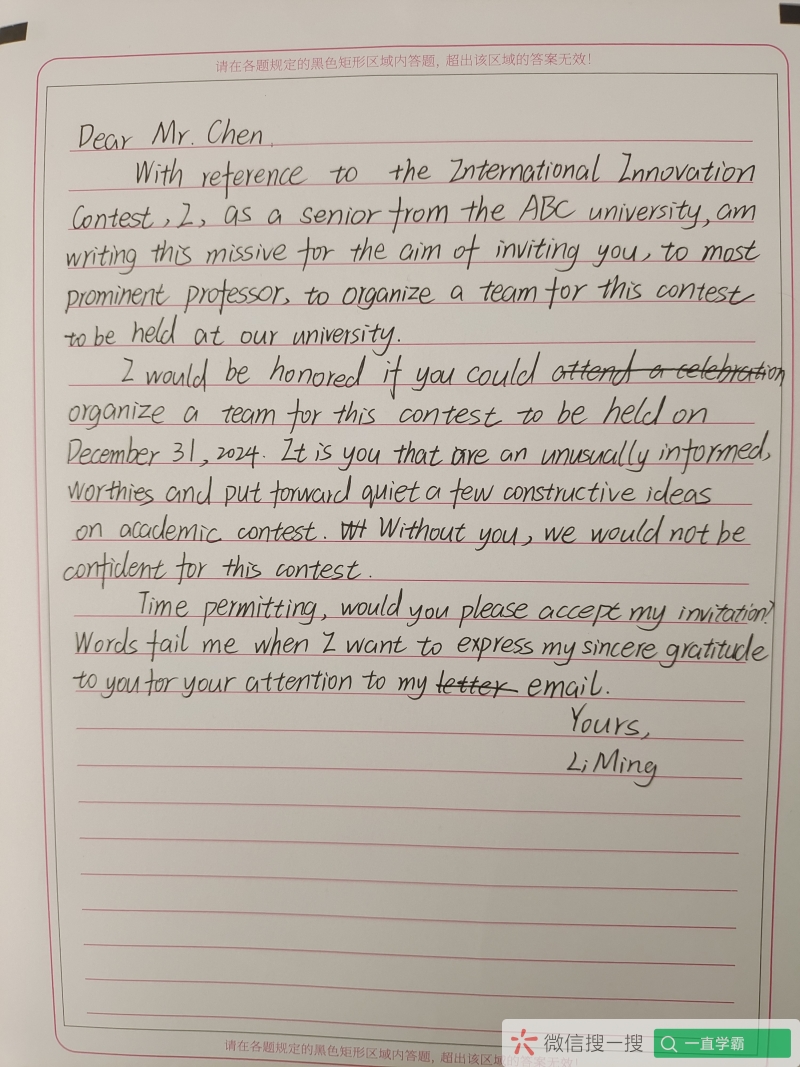 请在各题规定的黑色矩形区域内答题，超出该区域的答案无效！
Dear Mr. Chen.
With reference to the International Innovation
Contest, I, as a senior from the ABC university, am
writing this missive for the aim of inviting you, to most
prominent professor, to organize a team for this contest
to be held at our university.
I would be honored if you could attend a celebration
organize a team for this contest to be held on
December 31, 2024. It is you that are an unusually informed,
worthies and put forward quiet a few constructive ideas
on academic contest. Without you, we would not be
confident for this contest.
Time permitting, would you please accept my invitation?
Words fail me when I want to express my sincere gratitude
to you for your attention to my letter email.
Yours,
Li Ming
微信搜一搜 一直学霸
请在各题规定的黑色矩形区域内答题，超出该区域的答案无效！